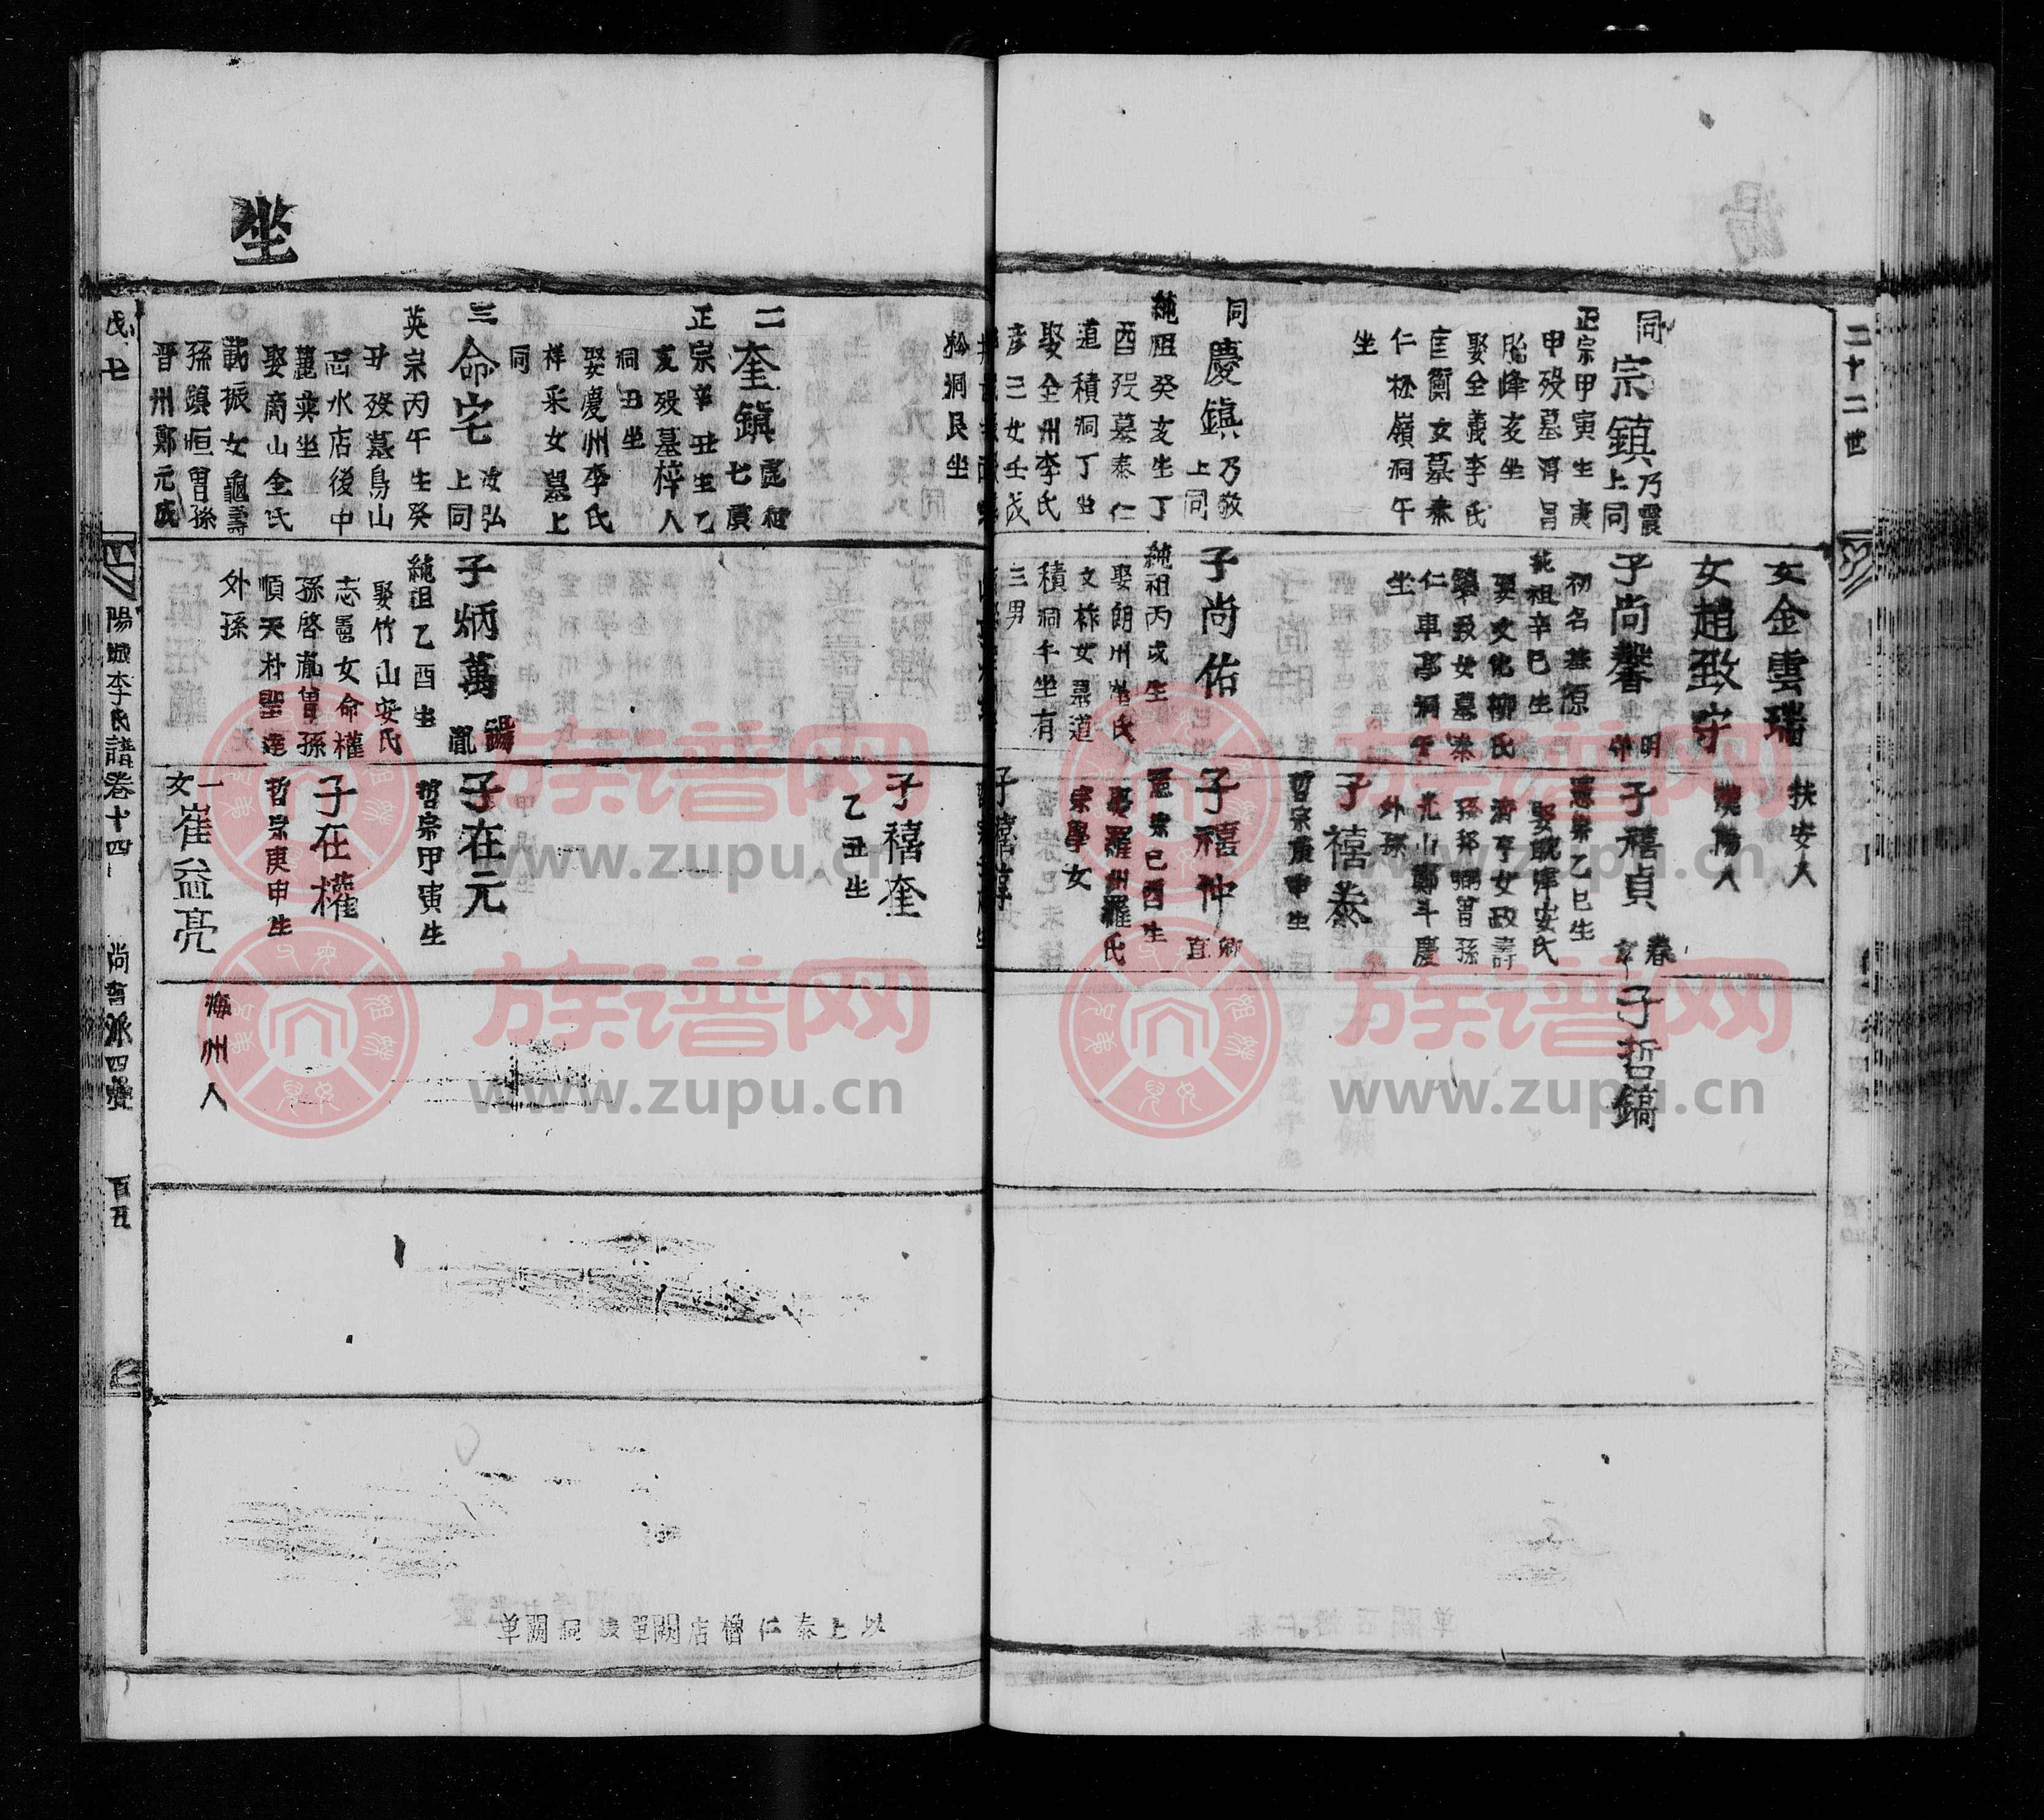 二十二世
同 宗鎮 乃震 上同
正宗甲寅生庚
甲歿墓淳昌
胎峰亥坐
娶全義李氏
匡衡女墓泰
仁松嶺洞午
坐
同 慶鎮 乃敬 上同
純祖癸亥生丁
酉歿墓泰仁
道積洞丁坐
娶全州李氏
彦三女壬戌
洞艮坐
女金雲瑞
女趙致守
子尚馨 明
初名基源
純祖辛巳生
娶文化柳氏
鎮致女墓泰
仁車亭洞午
坐
子尚佑
純祖丙戌生
娶朗州崔氏
文祚女墓道
積洞午坐有
三男
扶安人
漢陽人
子禧貞 春
憲宗乙巳生
娶耽津安氏
濟亨女政壽
孫邦弼曽孫
光山鄭斗慶
外孫
子禧泰
哲宗庚申生
子禧仲 卿 直
憲宗己酉生
娶羅州羅氏
宗學女
子哲鎬
坐
二 奎鎮
正宗辛丑生乙
亥歿墓梓人
洞丑坐
娶慶州李氏
祥采女墓上
同
三 命宅 汝弘 上同
英宗丙午生癸
丑歿墓烏山
店水店後中
麓巽坐
娶商山金氏
載振女龜壽
孫鎮恒曽孫
晋州鄭元成
子炳萬 胤
純祖乙酉生
娶竹山安氏
志壽女命權
孫啓胤曽孫
順天朴聖
外孫
子禧奎
乙丑生
子在元
哲宗甲寅生
子在權
哲宗庚申生
一女 崔益亮
海州人
以上泰仁檜店關單
洞關单
陽城李氏譜卷十四
尚書派四雙
百五
族谱网
www.zupu.cn
族谱网
www.zupu.cn
族谱网
www.zupu.cn
族谱网
www.zupu.cn